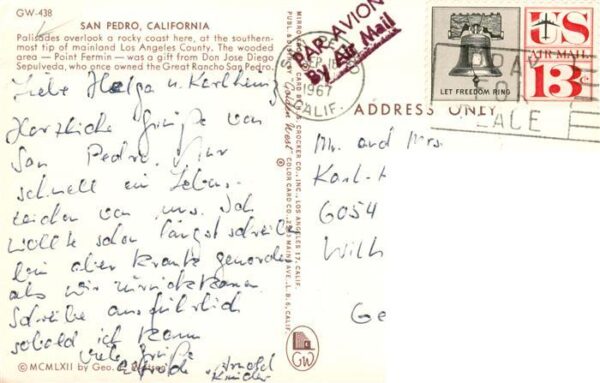 GW-438
SAN PEDRO, CALIFORNIA
Palisades overlook a rocky coast here, at the southern-
most tip of mainland Los Angeles County. The wooded
area — Point Fermin — was a gift from Don Jose Diego
Sepulveda, who once owned the Great Rancho San Pedro.
Liebe Helga u. Karlheinz
Herzliche Grüße von
San Pedro. Nur
schnell ein Lebens-
zeichen von uns. Ich
wollte schon längst schreiben
bin aber krank geworden
als wir zurückkamen
Schreibe ausführlich
sobald ich kann
Viele Grüße
Arnold
Kinder
© MCMLXII by Geo.
PUBL. & DIST. BY "Golden West" COLOR CARD CO.
GW
PAR AVION
By Air Mail
SEP
1967
CALIF.
LET FREEDOM RING
US
AIR MAIL
13c
ADDRESS ONLY
Mr. and Mrs.
Karl-
6054
Wilh
Ge